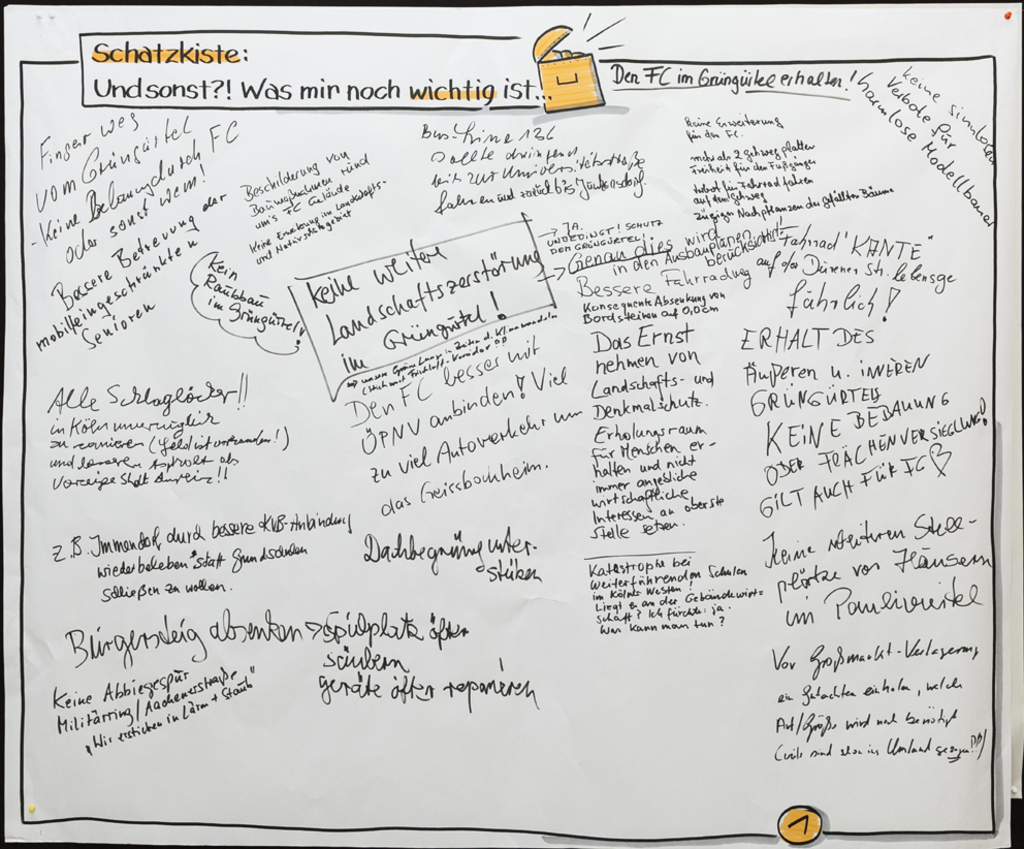 Schatzkiste:
Und sonst?! Was mir noch wichtig ist...
Den FC im Grüngürtel erhalten!
keine sinnlosen
Verbote für
harmlose Modellbauer
Finger weg
vom Grüngürtel
- Keine Bebauung durch FC
oder sonst wem!
Bessere Betreuung der
mobileingeschränkten
Senioren
Beschilderung von
Baumaßnahmen rund
um's FC Gelände
Keine Erweiterung im Landschafts-
und Naturschutzgebiet
Kein
Raubbau
im Grüngürtel!
Bus: Linie 136
sollte dringend
bis zur Universitätsstraße
fahren und zurück bis Junkersdorf.
Keine Erweiterung
für den FC.
mehr als 2 gehwegplatten
Freiheit für den Fußgänger
Verbot für Fahrrad fahren
auf dem Gehweg
zügiges Nachpflanzen der gefällten Bäume
keine weitere
Landschaftszerstörung
im Grüngürtel!
→ JA,
UNBEDINGT! SCHUTZ
DEN GRÜNGÜRTEL!
→ Genau dies wird
in den Ausbauplänen
berücksichtigt!
unsere Grüne Lunge in Zeiten d. Klimawandels
(Stichwort Frischluft-Korridor!)
Bessere Fahrradwg
Konsequente Absenkung von
Bordsteinen auf 0,0cm
"Fahrrad 'KANTE"
auf der Dürener Str. lebensge
fährlich!
Das Ernst
nehmen von
Landschafts- und
Denkmalschutz.
Erholungsraum
für Menschen er-
halten und nicht
immer angebliche
wirtschaftliche
Interessen an oberste
Stelle setzen.
ERHALT DES
Äußeren u. inneren
GRÜNGÜRTELS
KEINE BEBAUUNG
ODER FLÄCHENVERSIEGLUNG!
GILT AUCH FÜR FC
Alle Schlaglöcher!!
in Köln unverzüglich
zu sanieren (Geld ist vorhanden!)
und besseren Asphalt als
Vorzeige Stadt
Den FC besser mit
ÖPNV anbinden! Viel
zu viel Autoverkehr um
das Geissbockheim.
z.B. Immendorf durch bessere KVB-Anbindung
wiederbeleben statt Grundschulen
schließen zu wollen.
Dachbegrünung unter-
stützen
Katastrophe bei
Weiterführenden Schulen
im Kölner Westen!
Liegt es an der Gebäudewirt=
schaft? Ich fürchte: ja.
Was kann man tun?
Keine weiteren Stell-
plätze vor Häusern
im Pauliviertel
Bürgersteig absenken
→ Spielplatz öfter
säubern
geräte öfter reparieren
Keine Abbiegespur
Militärring/Aachenerstraße
"Wir ersticken in Lärm + Staub"
Vor Großmarkt-Verlagerung
ein Gutachten einholen, welche
Art/Größe wird noch benötigt
(viele sind schon ins Umland gezogen!!!)
1